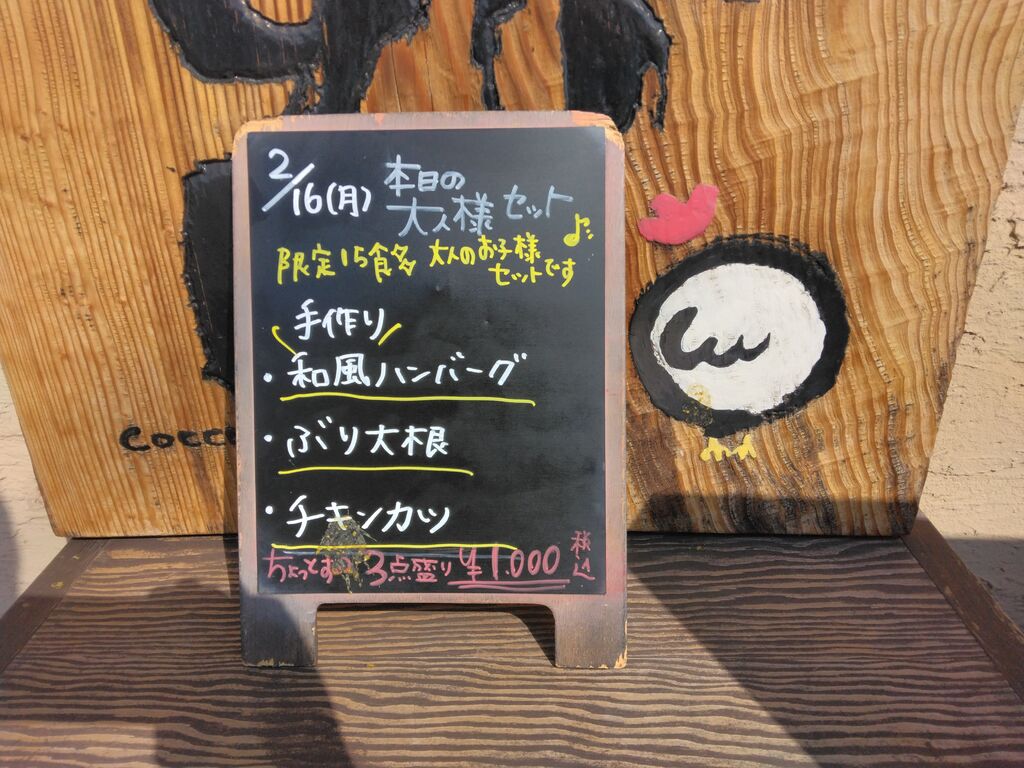 2/16(月)
本日の
大人様セット
限定15食
大人のお子様
セットです♪
手作り
・和風ハンバーグ
・ぶり大根
・チキンカツ
ちょっとずつ3点盛り¥1.000税込